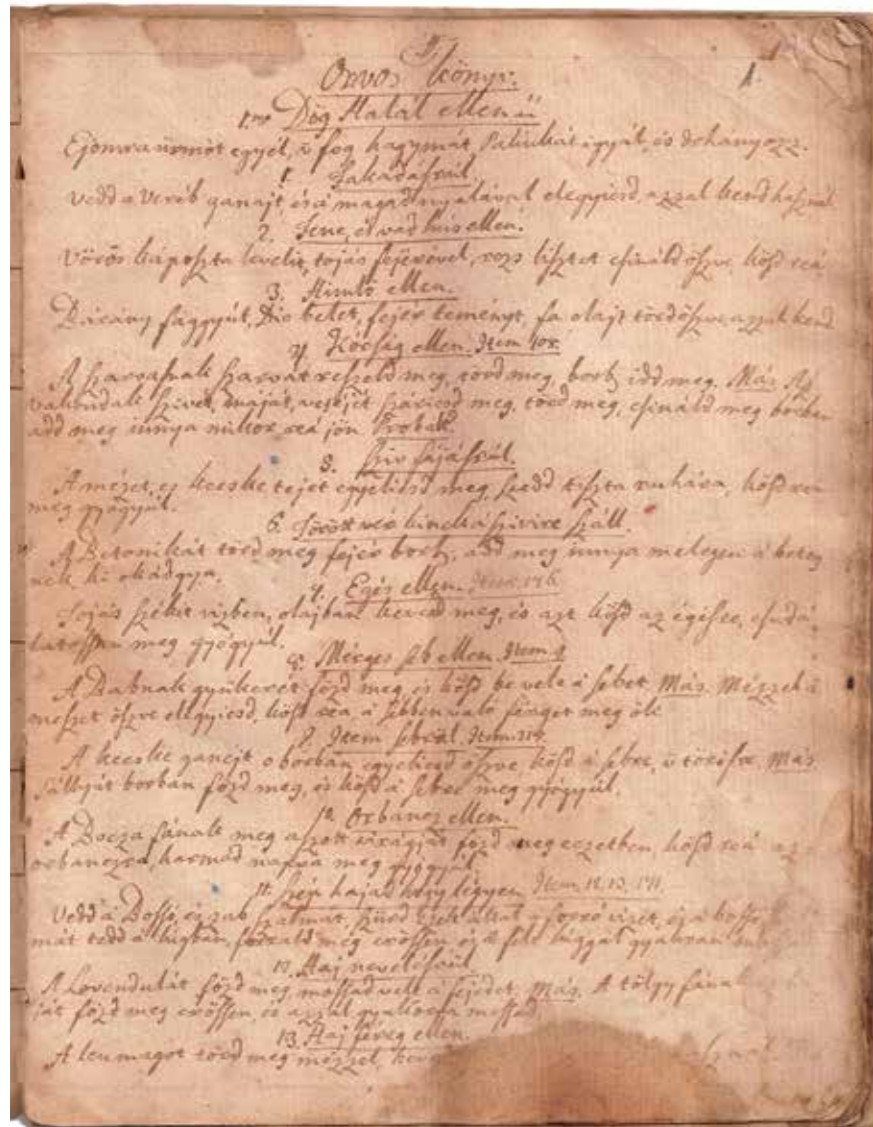 1
Orvos könyv.
1mo Dög Halál ellen
Ejomra ürmöt egyél, fog hagymát Pálinkát igyál, és dohányozz.
1. Fakadásrúl
vedd a veréb ganajt, és a magad nyálával elegyiesd, azzal kend
2. Fene, és vad hús ellen.
Vörös káposzta levelit, tojás fejérével, rozs lisztet csináld öszve, kösd reá
3. Himlő ellen.
Bárány faggyút, Dio belet, fejér teményt, fa olajt törd öszve, azzal kend
4. Kórság ellen. Item 108
A szarvasnak szarvát reszeld meg, törd meg, borb. idd meg. Más. Az
vakondak szívét, máját, veséjét száriesd meg, törd meg, csináld meg borban
add meg innya mikor reá jön. Probált.
Szív fájásrúl.
A mézet, és kecske tejet egyeliesd meg, szedd tiszta ruhára, kösd rea
meg gyógyúl.
6. Törött vér kinek a szivire száll.
A Betonikát törd meg fejér borb. add meg innya melegen a beteg
nek ki okádgya.
7. Egés ellen. Item 176
Tojás székit vízben, olajban keverd meg, és azt kösd az égésre, csudá
latossan meg gyógyúl.
8. Mérges seb ellen. Item 9
A Babnak gyükerét főzd meg, és kösd be vele a sebet. Más. Mézzel
meszet öszve ellgyiesd, kösd reá, a sebben való férget meg öli
9. Item sebrül. Item
A kecske ganéjt borban egyeliesd öszve, kösd a sebre, törésre. Más.
Sállyát borban főzd meg, és kösd a sebre meg gyógyúl.
10. Orbancz ellen.
A Bocza fának meg aszott virágját főzd meg eczetben, kösd reá az
orbanczra, harmad napra meg gyógyúl
11. Szép hajad hogy légyen Item 12. 13. 171.
Vedd a Borsó, és zab szalmát, szűrd által forró vizet, és a borsó
mát tedd a lúgban, forrald meg erössen és a féle lúggal gyakran
12. Haj nevelésrül
A Lovendulát főzd meg mossad vele a fejedet. Más. A tölgy fának
ját főzd meg erössen, és azzal gyakorta mossad
13. Haj féreg ellen.
A len magot törd meg mézzel,